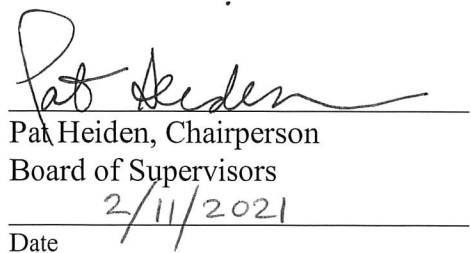 Pat Heiden
Pat Heiden, Chairperson
Board of Supervisors
2/11/2021
Date